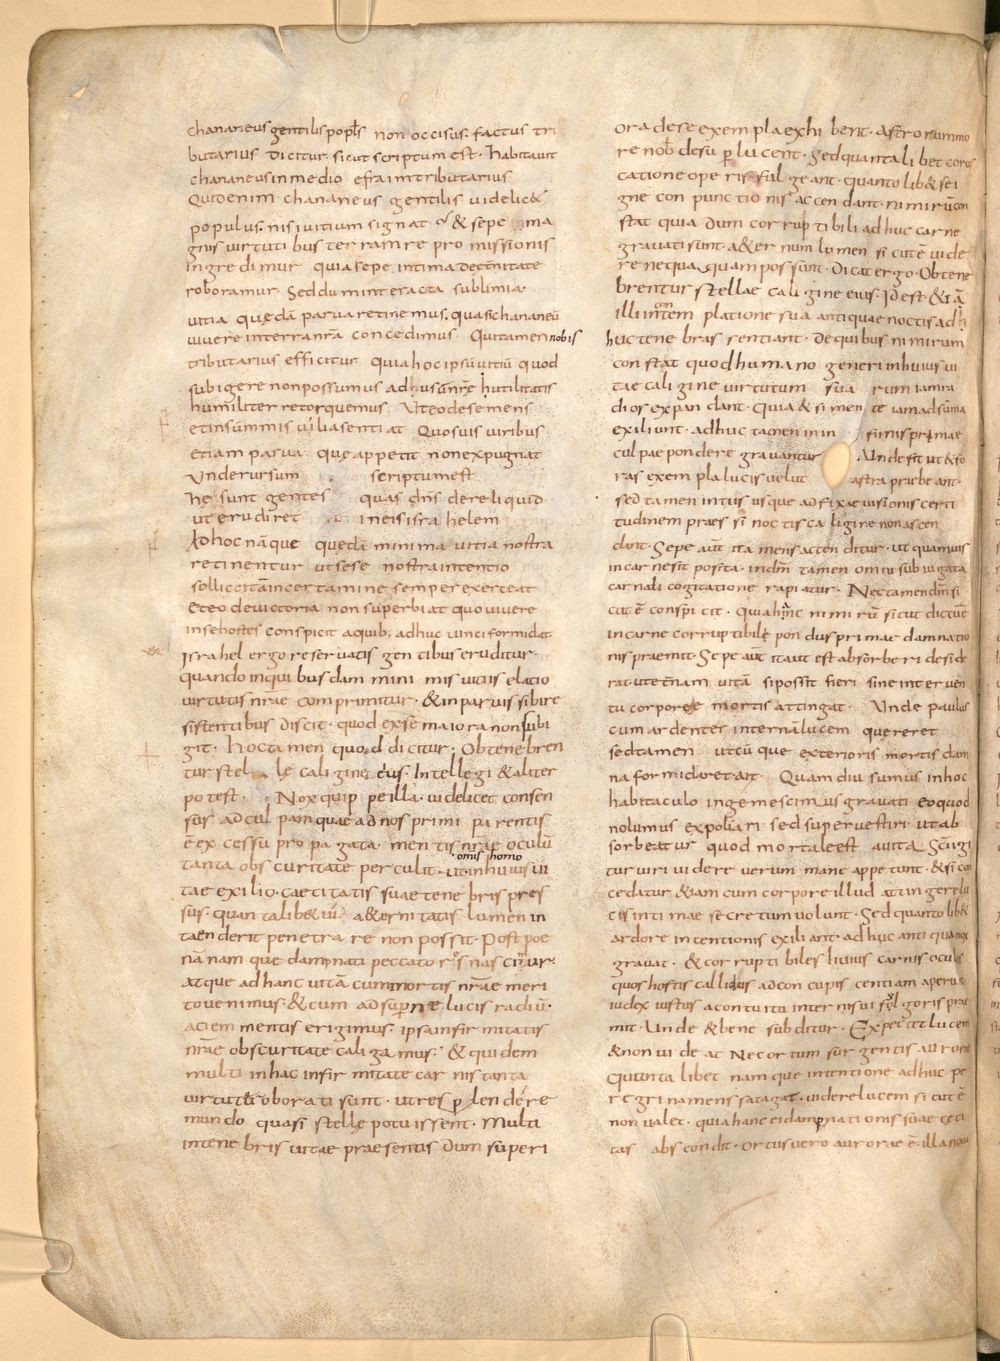 chananeus gentilis popl̄s non occisus. factus tri
butarius dicitur. sicut scriptum est. habitauit
chananeus in medio efraim tributarius
Quid enim chananeus gentilis uidelic&
populus nisi uitium signat. & sepe ma
gnis uirtutibus terram repromissionis
ingredimur quia sepe intima aeternitate
roboramur. Sed dum inter acta sublimia.
uitia quędā parua retinemus. quasi chananeū
uiuere in terra nr̄a concedimus. Qui tamen nobis
tributarius efficitur quia hoc ipsū uitiū quod
subigere non possumus ad usū nr̄ę hutilitatis
humiliter retorquemus. Ut eo de se mens
et in summis uilia sentiat Quo suis uiribus
etiam parua que appetit non expugnat
Unde rursum scriptum est
hę sunt gentes quas dn̄s dereliquid
ut erudiret in eis israhelem
Ad hoc nāque quędā minima uitia nostra
retinentur ut se se nostra intentio
sollicitā in certamine semper exerceat
Et eo de uictoria non superbiat quo uiuere
in se hostes conspicit a quib; adhuc uinci formidat.
Israhel ergo reseruatis gentibus eruditur.
quando in quibusdam minimis uitiis elatio
uirtutis nr̄ae comprimitur. & in paruis sibi re
sistentibus discit. quod ex se maiora non subi
git. hoc tamen quod dicitur. Obtenebren
tur stellę caligine eius. Intellegi & aliter
potest. Nox quippe illa. uidelicet consen
sus ad culpam quae ad nos primi parentis
ē excessu propagata. mentis nr̄ae oculū
tanta obscuritate perculit. ut omis homo in huius ui
tae exilio. caecitatis suae tenebris pres
sus. quantalib& ui aeternitatis lumen in
taenderit penetrare non possit. Post poe
nā nam que damnati peccatores nascimur.
atque ad hanc uitā cum mortis nr̄ae meri
to uenimus. & cum ad supernę lucis radiū.
aciem mentis erigimus. ipsa infirmitatis
nr̄ae obscuritate caligamus. & quidem
multi in hac infirmitate carnis tanta
uirtute roborati sunt. ut resplendere
mundo quasi stellę potuissent. Multi
in tenebris uitae praesentis dum superi
ora de se exempla exhibent. Astrorum mo
re nob̄ desup̱ lucent. Sed quantalibet corus
catione operis fulgeant. quanto lib& se i
gne conpunctionis accendant. nimirū con
stat quia dum corruptibili adhuc carne
grauati sunt. a&ernum lumen sicutē uide
re nequaquam possunt. Dicat ergo. Obtene
brentur stellae caligine eius. Id est & iā
illi in con tem platione sua antiquae noctis adh
huc tenebras sentiant. De quibus nimirum
constat quod humano generi in huius ui
tae caligine uirtutum suarum iam ra
dios expandant. Quia & si mente iam ad sūma
exiliunt. adhuc tamen in infimis primae
culpae pondere grauantur. Unde fit ut & fo
ras exempla lucis uelut astra praebeant.
sed tamen intus usque ad fixae uisionis certi
tudinem praessi noctis caligine non ascen
dant. Sepe aut̄ ita mens accenditur. ut quamuis
in carne sit posita. in dm̄ tamen omni subiugata
carnali cogitatione rapiatur. Nec tamen dm̄ si
cutē conspicit. quia hunc nimirū sicut dictum ē
in carne corruptibile pondus primae damnatio
nis praemit. Sepe aut̄ ita ut est absorberi deside
rat. ut et̄nam uitā si possit fieri sine interuen
tu corporee mortis attingat. Unde paulus
cum ardenter internā lucem quereret
sed tamen utcūque exterioris mortis dam
na formidaret ait. Quamdiu sumus in hoc
habitaculo ingemescimus grauati eo quod
nolumus expoliari sed superuestiri ut ab
sorbeatur quod mortale est a uita. Sci igi
tur uiri uidere uerum mane appetunt. & si con
ceditur & iam cum corpore illud attingere lu
cis intimae secretum uolunt. Sed quanto lib&
ardore intentionis exiliant. adhuc antiqua nox
grauat. & corruptibiles huius carnis oculos
quos hostis callidus ad concupiscentiam aperuit
iudex iustus a contuitu interni sui fulgoris prae
mit. Unde & bene subditur. Expectet lucem
& non uideat Nec ortum surgentis aurorae
Quanta libet nam que intentione adhuc pe
regrina mens satagat. uidere lucem sicutē
non ualet. quia hanc ei dampnati onis suae ceci
tas abscondit. ortus uero aurorae ē illa noua